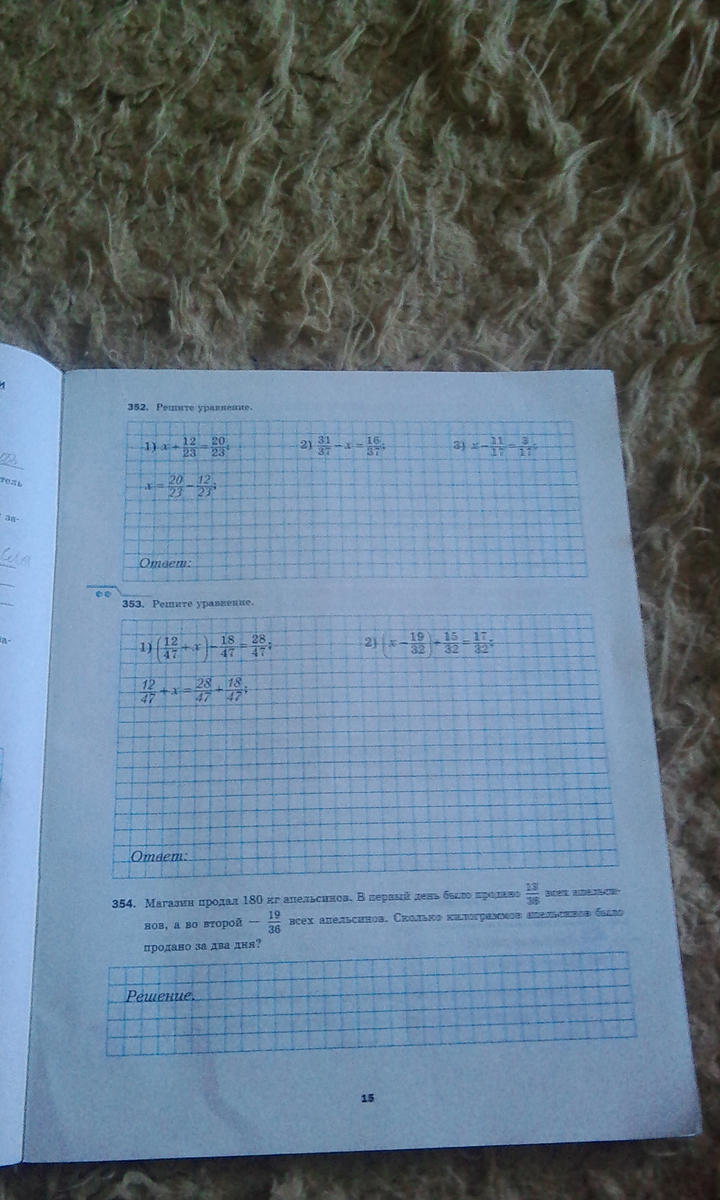 352. Решите уравнение.
1) x + 12/23 = 20/23; 2) 31/37 − x = 16/37; 3) x − 11/17 = 3/17;
x = 20/23 − 12/23;
Ответ:
353. Решите уравнение.
1) (12/47 + x) − 18/47 = 28/47; 2) (x − 19/32) + 15/32 = 17/32;
12/47 + x = 28/47 + 18/47;
Ответ:
354. Магазин продал 180 кг апельсинов. В первый день было продано 13/36 всех апельси-
нов, а во второй — 19/36 всех апельсинов. Сколько килограммов апельсинов было
продано за два дня?
Решение.
15
и
тель
за-